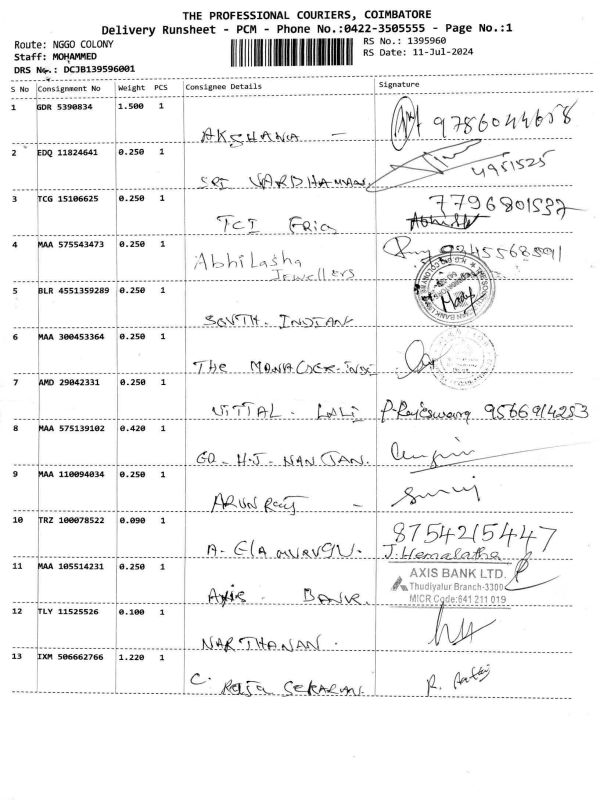 THE PROFESSIONAL COURIERS, COIMBATORE
Delivery Runsheet - PCM - Phone No.:0422-3505555 - Page No.:1
Route: NGGO COLONY
RS No.: 1395960
Staff: MOHAMMED
RS Date: 11-Jul-2024
DRS No.: DCJB139596001
S No Consignment No Weight PCS Consignee Details Signature
1 GDR 5390834 1.500 1
AKSHANA - 9786044658
2 EDQ 11824641 0.250 1
SRI VARDHAMAN 4951525
3 TCG 15106625 0.250 1 7796801537
TCI
4 MAA 575543473 0.250 1
Abhilasha
Jewellers
5 BLR 4551359289 0.250 1
SOUTH. INDIAN
6 MAA 300453364 0.250 1
THE
7 AMD 29042331 0.250 1
VITTAL - P. Rajeswari 9566914253
8 MAA 575139102 0.420 1
9 MAA 110094034 0.250 1
ARUN Raj -
10 TRZ 100078522 0.090 1 8754215447
J. Hemalatha
11 MAA 105514231 0.250 1 AXIS BANK LTD.
Thudiyalur Branch-3300
Axis BANK. MICR Code:641 211 019
12 TLY 11525526 0.100 1
NARTHANAN.
13 IXM 506662766 1.220 1
C. Raja SEKARAN. R.